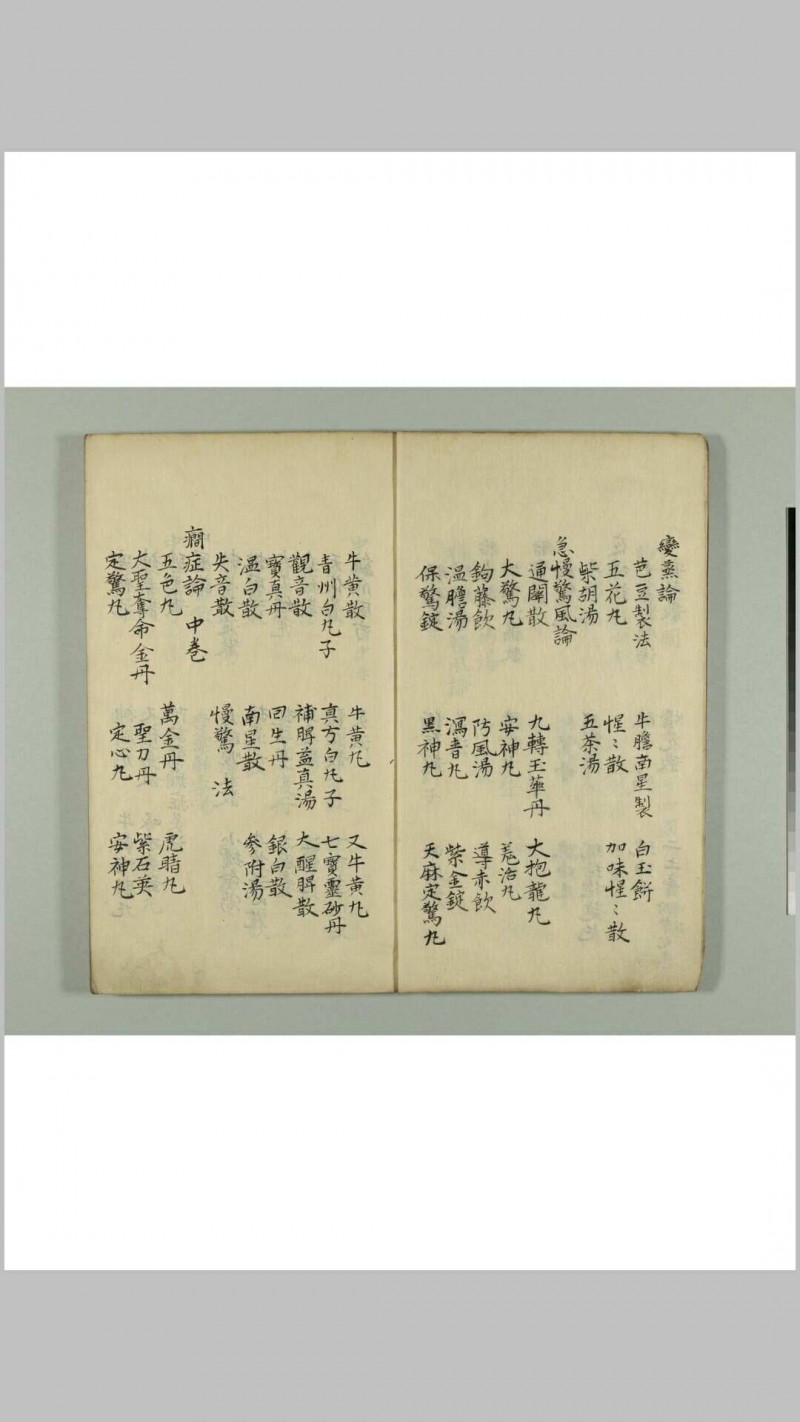 變蒸論
芭豆製法 牛膽南星製 白玉餅
五花丸 惺〻散 加味惺〻散
柴胡湯 五茶湯
急慢驚風論
通關散 九轉玉華丹 大抱龍丸
大驚丸 安神丸 羗治丸
鉤藤飲 防風湯 導赤飲
温膽湯 瀉青丸 紫金錠
保驚錠 黑神丸 天麻定驚丸
牛黄散 牛黄丸 又牛黄丸
青州白丸子 真方白丸子 七寶靈砂丹
觀音散 補脾益真湯 大醒脾散
寶真丹 回生丹 銀白散
温白散 南星散 參附湯
失音散 慢驚 法
癇症論 中卷
五色丸 萬金丹 虎睛丸
大聖奪命金丹 聖刀丹 紫石英
定驚丸 定心丸 安神丸